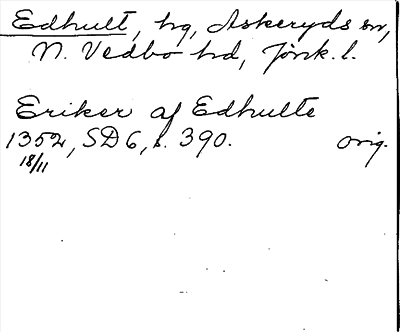 Edhult, hg, Askeryds sn,
N. Vedbo hd, Jönk. l.
Eriker af Edhulte
1352, SD 6, s. 390. orig.
18/11